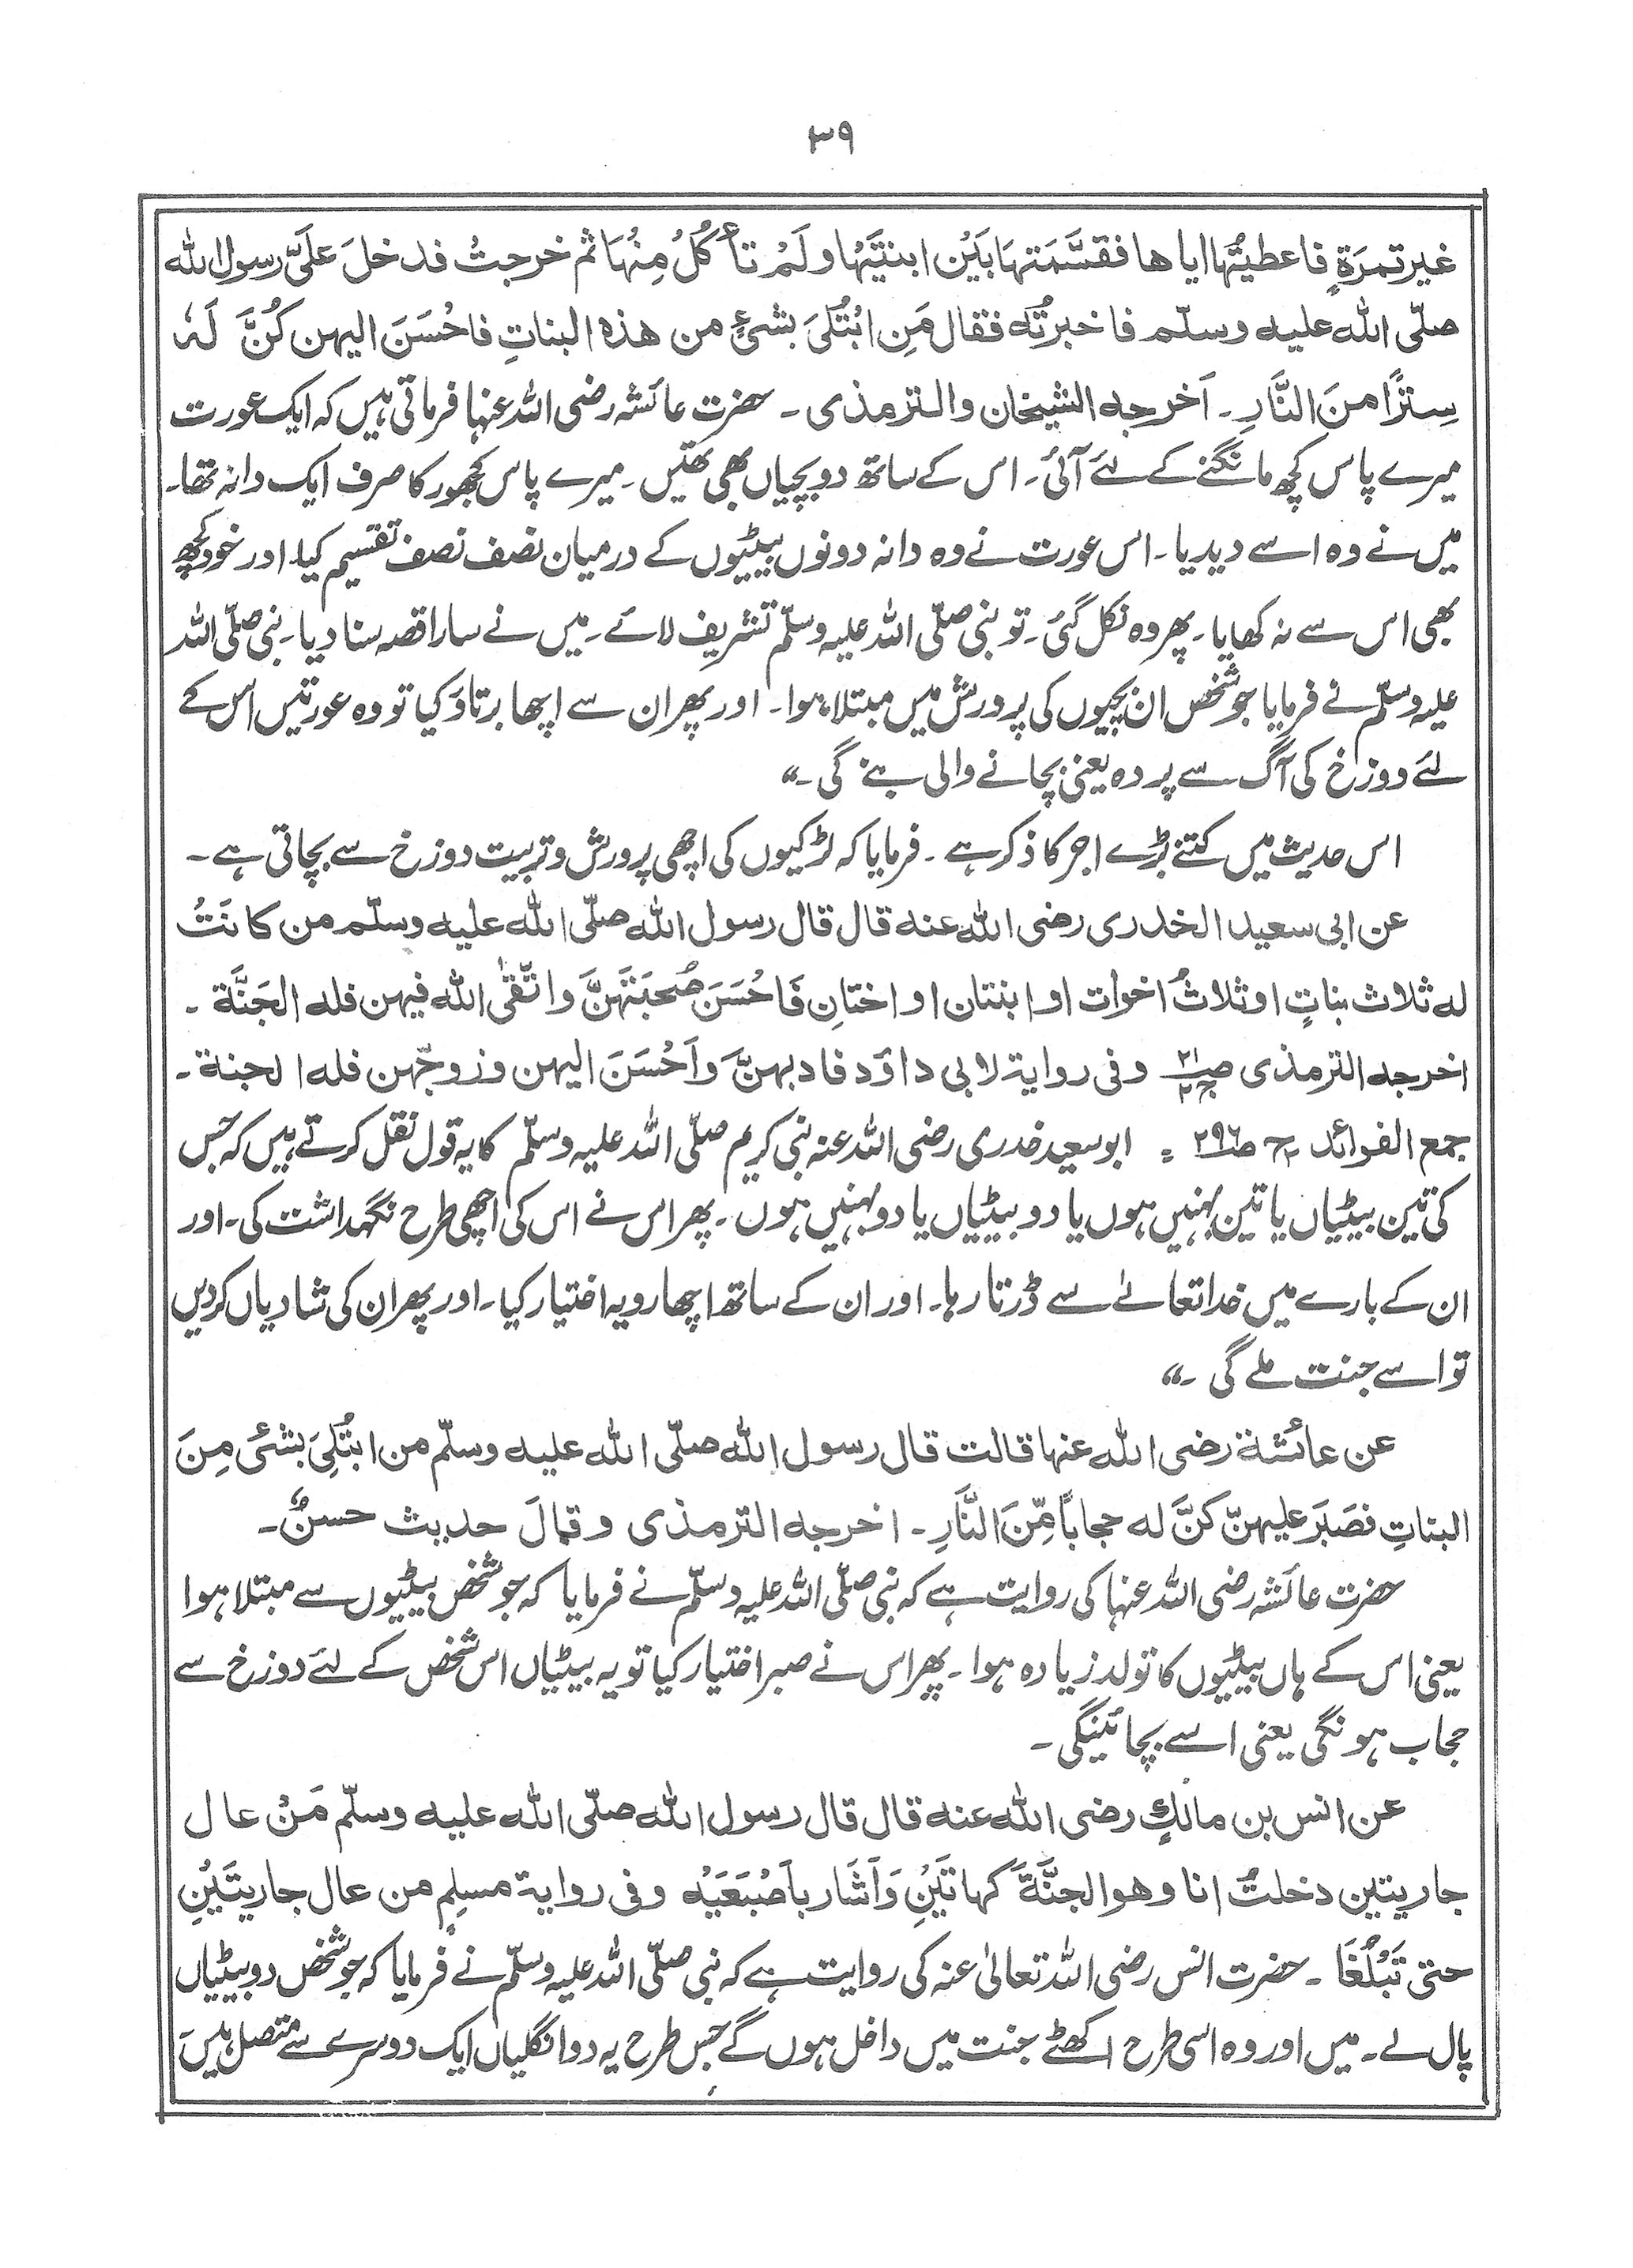 ۳۹
غیر تمرَةٍ فاعطیتُہا ایاھا فقسَّمَتہَا بَیْن ابنتیَہا ولَمْ تأکُلُ مِنْہَا ثم خرجتُ فدخلَ عَلَیَّ رسول اللہ
صلّی اللہ علیہ وسلّم فاخبرتُہ فقال مَنِ ابْتُلِیَ بشیءٍ من ھذہ البناتِ فاحْسَنَ الیہن کُنَّ لَہٗ
سِتْرًا مِنَ النَّارِ۔ اَخرجہ الشیخان والترمذی ۔ حضرت عائشہ رضی اللہ عنہا فرماتی ہیں کہ ایک عورت
میرے پاس کچھ مانگنے کے لئے آئی۔ اس کے ساتھ دو بچیاں بھی تھیں۔ میرے پاس کھجور کا صرف ایک دانہ تھا۔
میں نے وہ اسے دیدیا۔ اس عورت نے وہ دانہ دونوں بیٹیوں کے درمیان نصف نصف تقسیم کیا اور خود کچھ
بھی اس سے نہ کھایا۔ پھر وہ نکل گئی۔ تو نبی صلّی اللہ علیہ وسلّم تشریف لائے۔ میں نے سارا قصہ سنا دیا۔ نبی صلّی اللہ
علیہ وسلّم نے فرمایا جو شخص ان بچیوں کی پرورش میں مبتلاء ہوا۔ اور پھر ان سے اچھا برتاؤ کیا تو وہ عورتیں اس کے
لئے دوزخ کی آگ سے پردہ یعنی بچانے والی بنے گی۔“
اس حدیث میں کتنے بڑے اجر کا ذکر ہے ۔ فرمایا کہ لڑکیوں کی اچھی پرورش و تربیت دوزخ سے بچاتی ہے ۔
عن ابی سعید الخدری رضی اللہ عنہ قال قال رسول اللہ صلّی اللہ علیہ وسلّم من کانَتُ
لہ ثلاث بناتٍ او ثلاثُ اخوات او ابنتان او اختانِ فَاحْسَنَ صُحبَتَہُنَّ واتَّقَی اللہ فیہن فلہ الجَنَّة ۔
اخرجہ الترمذی ص۲۱ ج۲ وفی روایة لابی داؤد فادبہنَّ وَاَحْسَنَ الیہن وزوجّہن فلہ الجنة ۔
جمع الفوائد ج۲ ص۲۹۶ = ابوسعید خدری رضی اللہ عنہ نبی کریم صلّی اللہ علیہ وسلّم کا یہ قول نقل کرتے ہیں کہ جس
کی تین بیٹیاں یا تین بہنیں ہوں یا دو بیٹیاں یا دو بہنیں ہوں ۔ پھر اس نے اس کی اچھی طرح نگہداشت کی۔ اور
ان کے بارے میں خدا تعالےٰ سے ڈرتا رہا۔ اور ان کے ساتھ اچھا رویہ اختیار کیا۔ اور پھر ان کی شادیاں کردیں
تو اسے جنت ملے گی ۔“
عن عائشة رضی اللہ عنہا قالت قال رسول اللہ صلّی اللہ علیہ وسلّم من ابتُلِیَ بشیٔ مِنَ
البناتِ فصَبَرَ علیہنّ کنَّ لہ حجابًا مِّنَ النَّارِ ۔ اخرجہ الترمذی وقالَ حدیث حسنٌ۔
حضرت عائشہ رضی اللہ عنہا کی روایت ہے کہ نبی صلّی اللہ علیہ وسلّم نے فرمایا کہ جو شخص بیٹیوں سے مبتلا ہوا
یعنی اس کے ہاں بیٹیوں کا تولد زیادہ ہوا۔ پھر اس نے صبر اختیار کیا تو یہ بیٹیاں اس شخص کے لئے دوزخ سے
حجاب ہونگی یعنی اسے بچائینگی ۔
عن انس بن مالکٍ رضی اللہ عنہ قال قال رسول اللہ صلّی اللہ علیہ وسلّم مَنْ عال
جاریتین دخلتُ انا وھو الجنَّةَ کہاتَیْنِ وَاَشَار باَصْبَعَیْہ وفی روایة مسلِمٍ من عال جاریتَیْنِ
حتی تَبْلُغَا ۔ حضرت انس رضی اللہ تعالیٰ عنہ کی روایت ہے کہ نبی صلّی اللہ علیہ وسلّم نے فرمایا کہ جو شخص دو بیٹیاں
پال لے۔ میں اور وہ اسی طرح اکھٹے جنت میں داخل ہوں گے جس طرح یہ دو انگلیاں ایک دوسرے سے متصل ہیں